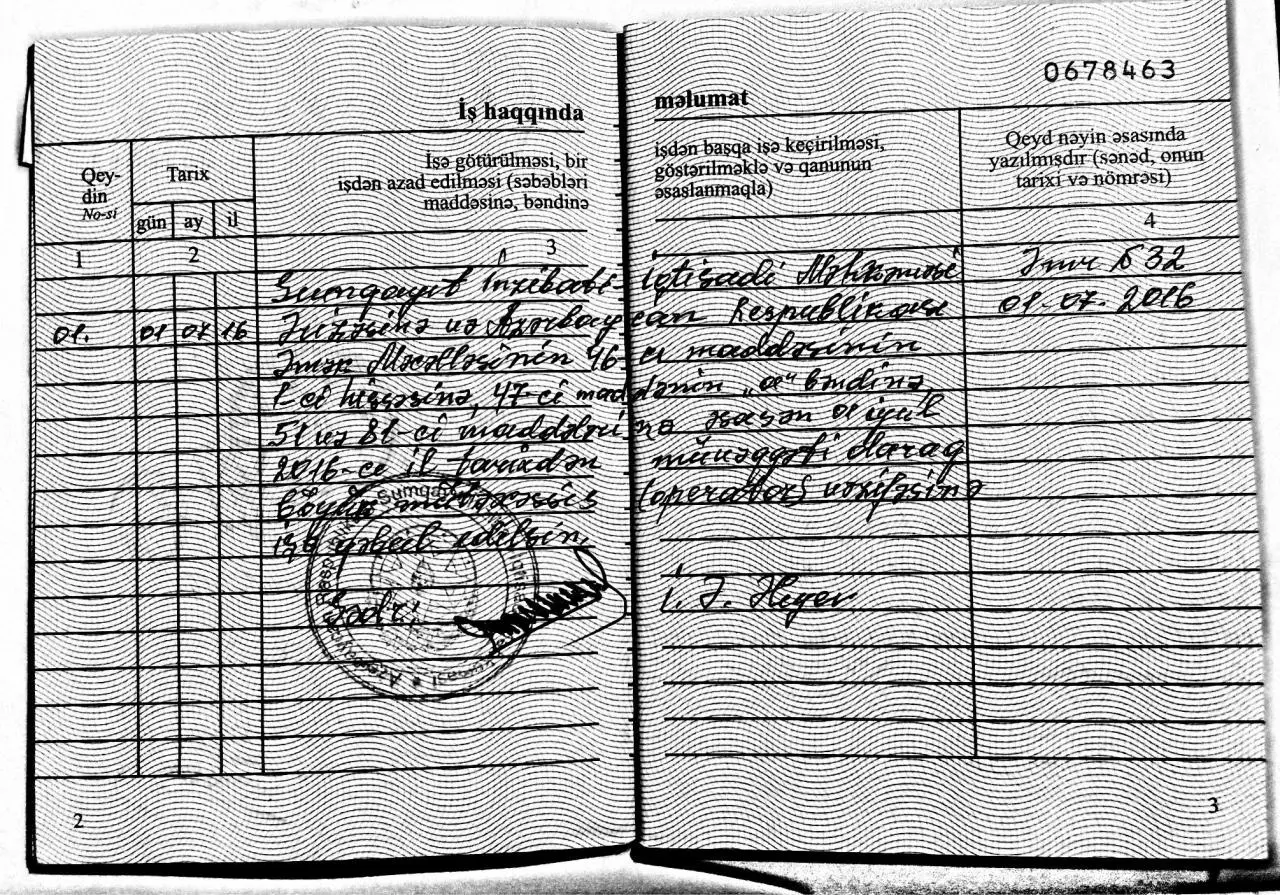 0678463
İş haqqında məlumat
Qey-
din
No-si
Tarix
gün ay il
İşə götürülməsi, bir işdən başqa işə keçirilməsi,
işdən azad edilməsi (səbəbləri göstərilməklə və qanunun
maddəsinə, bəndinə əsaslanmaqla)
Qeyd nəyin əsasında
yazılmışdır (sənəd, onun
tarixi və nömrəsi)
1 2 3 4
Sumqayıt İnzibati-İqtisadi Məhkəməsi Əmr № 32
01. 01 07 16 və Azərbaycan Respublikası 01.07.2016
Əmək Məcəlləsinin 46-cı maddəsinin
1 ci hissəsinə, 47-ci maddənin „a“ bəndinə,
51 və 81-ci maddələrinə əsasən 01 iyul
2016-cı il tarixdən müvəqqəti olaraq
böyük mütəxəssis (operator) vəzifəsinə
işə qəbul edilsin.
Sədri: İ. J.
2
3